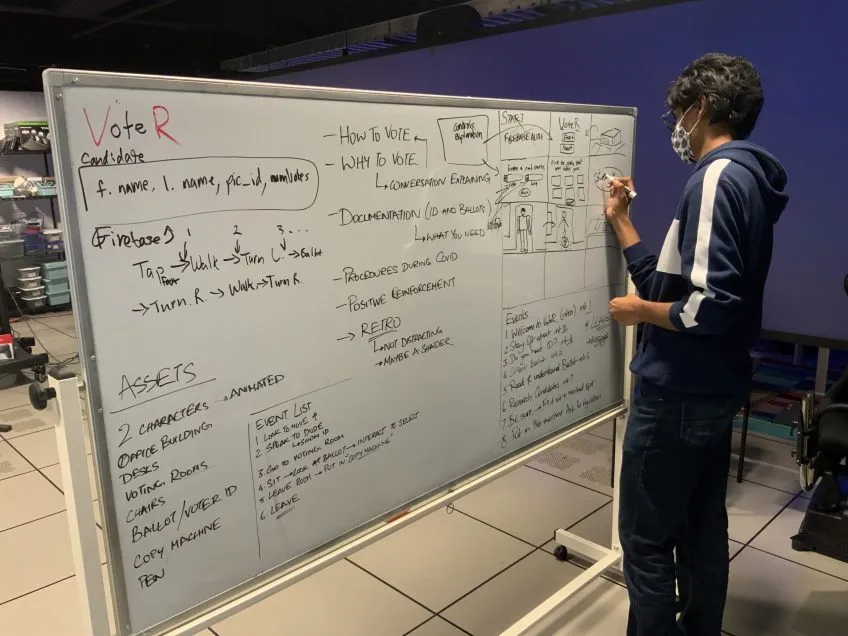 VoteR
Candidate
f. name, l. name, pic_id, numVotes
(Firebase)
1 2 3 ...
Tap → Walk → Turn L. → Ballot
→ Turn R. → Walk → Turn R.
ASSETS
2 CHARACTERS → ANIMATED
OFFICE BUILDING
DESKS
VOTING ROOMS
CHAIRS
BALLOT/VOTER ID
COPY MACHINE
PEN
EVENT LIST
1. LOOK TO MOVE
2. SPEAK TO DUDE
↳ SHOW ID
3. GO TO VOTING ROOM
4. SIT → LOOK AT BALLOT → INTERACT TO SELECT
5. LEAVE ROOM → PUT IN "COPY MACHINE"
6. LEAVE
- HOW TO VOTE
- WHY TO VOTE
↳ CONVERSATION EXPLAINING
- DOCUMENTATION (ID AND BALLOTS)
↳ WHAT YOU NEED
- PROCEDURES DURING COVID
- POSITIVE REINFORCEMENT
→ RETRO
↳ NOT DISTRACTING
→ MAYBE A SHADER
Controls
Explanation
START
FIREBASE AUTH
VOTER
Events
1. Welcome to VoteR (intro)
2. Stay 6ft apart
3. Do you have ID?
4. Collect Ballot
5. Read & understand Ballot
6. Research Candidates
7. Be sure → Fill out
8. Put in the machine